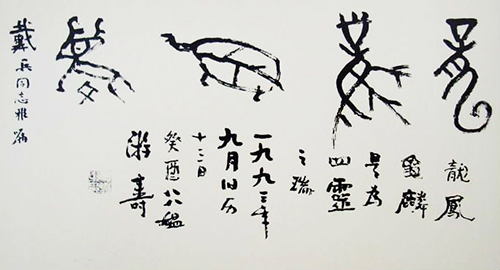 龍
鳳
龜
麟
龍鳳
龜麟
是為
四靈
之瑞
一九九三年
九月旧历
十二日
癸酉八媪
游壽
戴兵同志雅屬